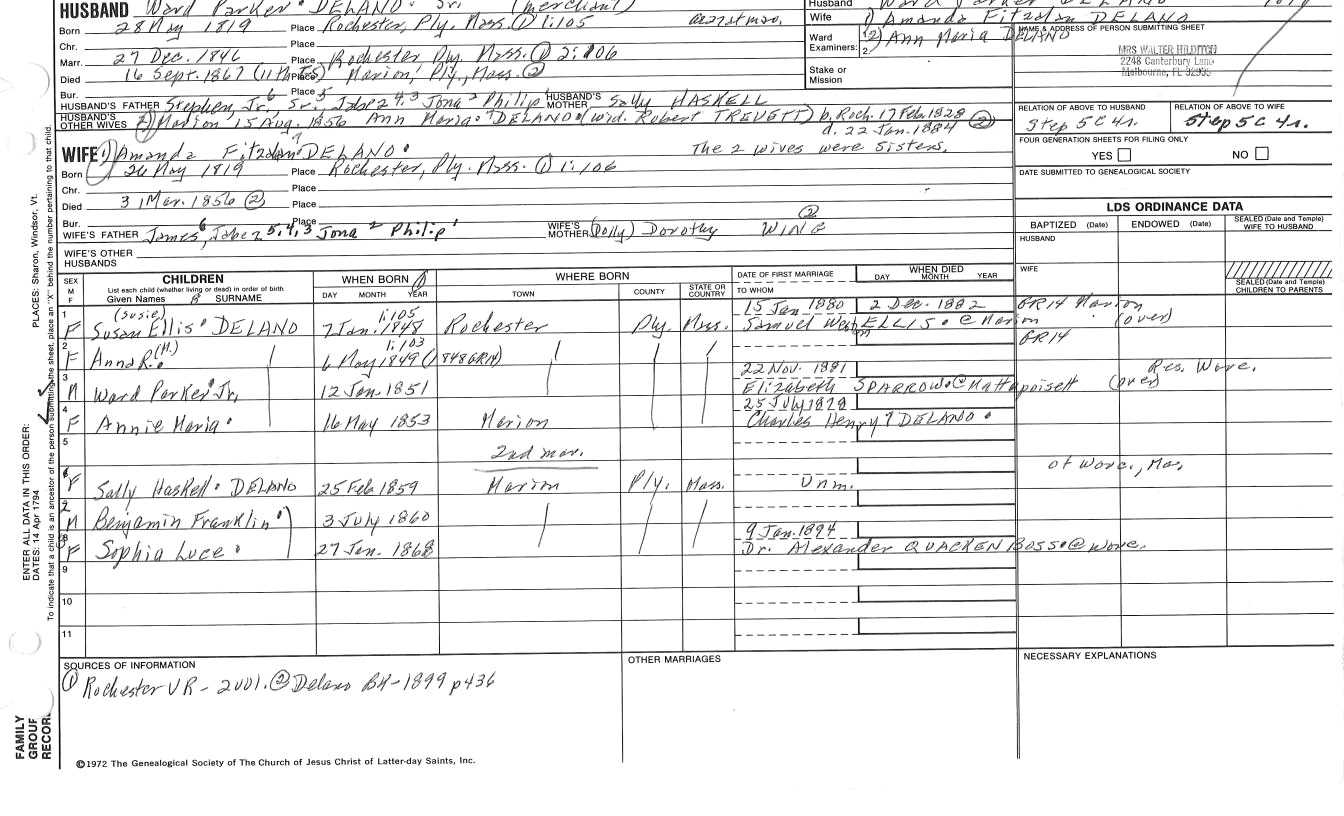 HUSBAND Ward Parker DELANO Sr. (merchant)
Born 28 May 1819 Place Rochester, Ply. Mass. ① 1:105 at 1st mar.
Chr. Place
Marr. 27 Dec. 1846 Place Rochester, Ply. Mass. ① 2:106
Died 16 Sept. 1867 Place Marion, Ply., Mass. ②
Bur. Place
HUSBAND'S FATHER Stephen, Jr.⁶, Sr.⁵, Jabez⁴,³ Jona² Philip¹ HUSBAND'S MOTHER Sally HASKELL
HUSBAND'S OTHER WIVES (2) Marion 15 Aug. 1856 Ann Maria DELANO (wid. Robert TREVETT) b. Roch. 17 Feb. 1828 ②
d. 22 Jan. 1884
The 2 wives were sisters.
WIFE 1) Amanda Fitzalan DELANO
Born 26 May 1819 Place Rochester, Ply. Mass. ① 1:106
Chr. Place
Died 31 Mar. 1856 ② Place
Bur. Place
WIFE'S FATHER James⁶, Jabez⁵,⁴,³ Jona² Philip¹ WIFE'S MOTHER (Dolly) Dorothy WING ②
WIFE'S OTHER HUSBANDS
Husband Ward Parker DELANO 1819
Wife 1) Amanda Fitzalan DELANO
2) Ann Maria DELANO
Ward Examiners: 1. 2.
Stake or Mission
NAME & ADDRESS OF PERSON SUBMITTING SHEET
MRS WALTER HILDITCH
2248 Canterbury Lane
Melbourne, FL 32935
RELATION OF ABOVE TO HUSBAND RELATION OF ABOVE TO WIFE
Step 5C 4r. Step 5C 4r.
FOUR GENERATION SHEETS FOR FILING ONLY
YES NO
DATE SUBMITTED TO GENEALOGICAL SOCIETY
LDS ORDINANCE DATA
BAPTIZED (Date) ENDOWED (Date) SEALED (Date and Temple) WIFE TO HUSBAND
HUSBAND
WIFE
SEALED (Date and Temple) CHILDREN TO PARENTS
SEX M F
CHILDREN
List each child (whether living or dead) in order of birth
Given Names SURNAME
WHEN BORN ①
DAY MONTH YEAR
WHERE BORN
TOWN COUNTY STATE OR COUNTRY
DATE OF FIRST MARRIAGE
TO WHOM
WHEN DIED
DAY MONTH YEAR
1 F (Susie) Susan Ellis DELANO 1:105 7 Jan. 1848 Rochester Ply. Mass. 15 Jan 1880 2 Dec. 1882 GR14 Marion
Samuel ELLIS @ Marion (over)
2 F Anna R. (M.) 1:103 6 May 1849 (1848 GR14) GR14
3 M Ward Parker Jr. 12 Jan. 1851 22 Nov. 1881 Res. Worc.
Elizabeth SPARROW @ Mattapoisett (over)
4 F Annie Maria 16 May 1853 Marion 25 July 1878
Charles Henry DELANO
5
2nd mar.
of Worc., Mas.
6 F Sally Haskell DELANO 25 Feb 1859 Marion Ply. Mass. Unm.
7 M Benjamin Franklin 3 July 1860
8 F Sophia Luce 27 Jan. 1868 9 Jan. 1894
Dr. Alexander QUACKENBOSS @ Worc.
9
10
11
SOURCES OF INFORMATION
① Rochester VR - 2001. ② Delano BK - 1899 p436
OTHER MARRIAGES
NECESSARY EXPLANATIONS
©1972 The Genealogical Society of The Church of Jesus Christ of Latter-day Saints, Inc.
FAMILY GROUP RECORD
ENTER ALL DATA IN THIS ORDER:
DATES: 14 Apr 1794
PLACES: Sharon, Windsor, Vt.
To indicate that a child is an ancestor of the person submitting the sheet, place an "X" behind the number pertaining to that child.